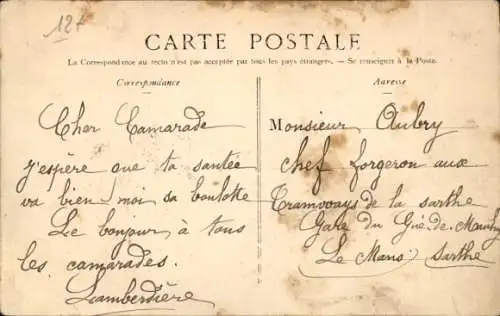 12f
CARTE POSTALE
La Correspondance au recto n'est pas acceptée par tous les pays étrangers. — Se renseigner à la Poste.
Correspondance
Cher Camarade
j'espère que ta santée
va bien, moi sa boulotte
Le bonjour à tous
les camarades.
Lamberdière
Adresse
Monsieur Aubry
chef forgeron aux
Tramways de la sarthe
Gare du Gué-de-Maulny
Le Mans) sarthe